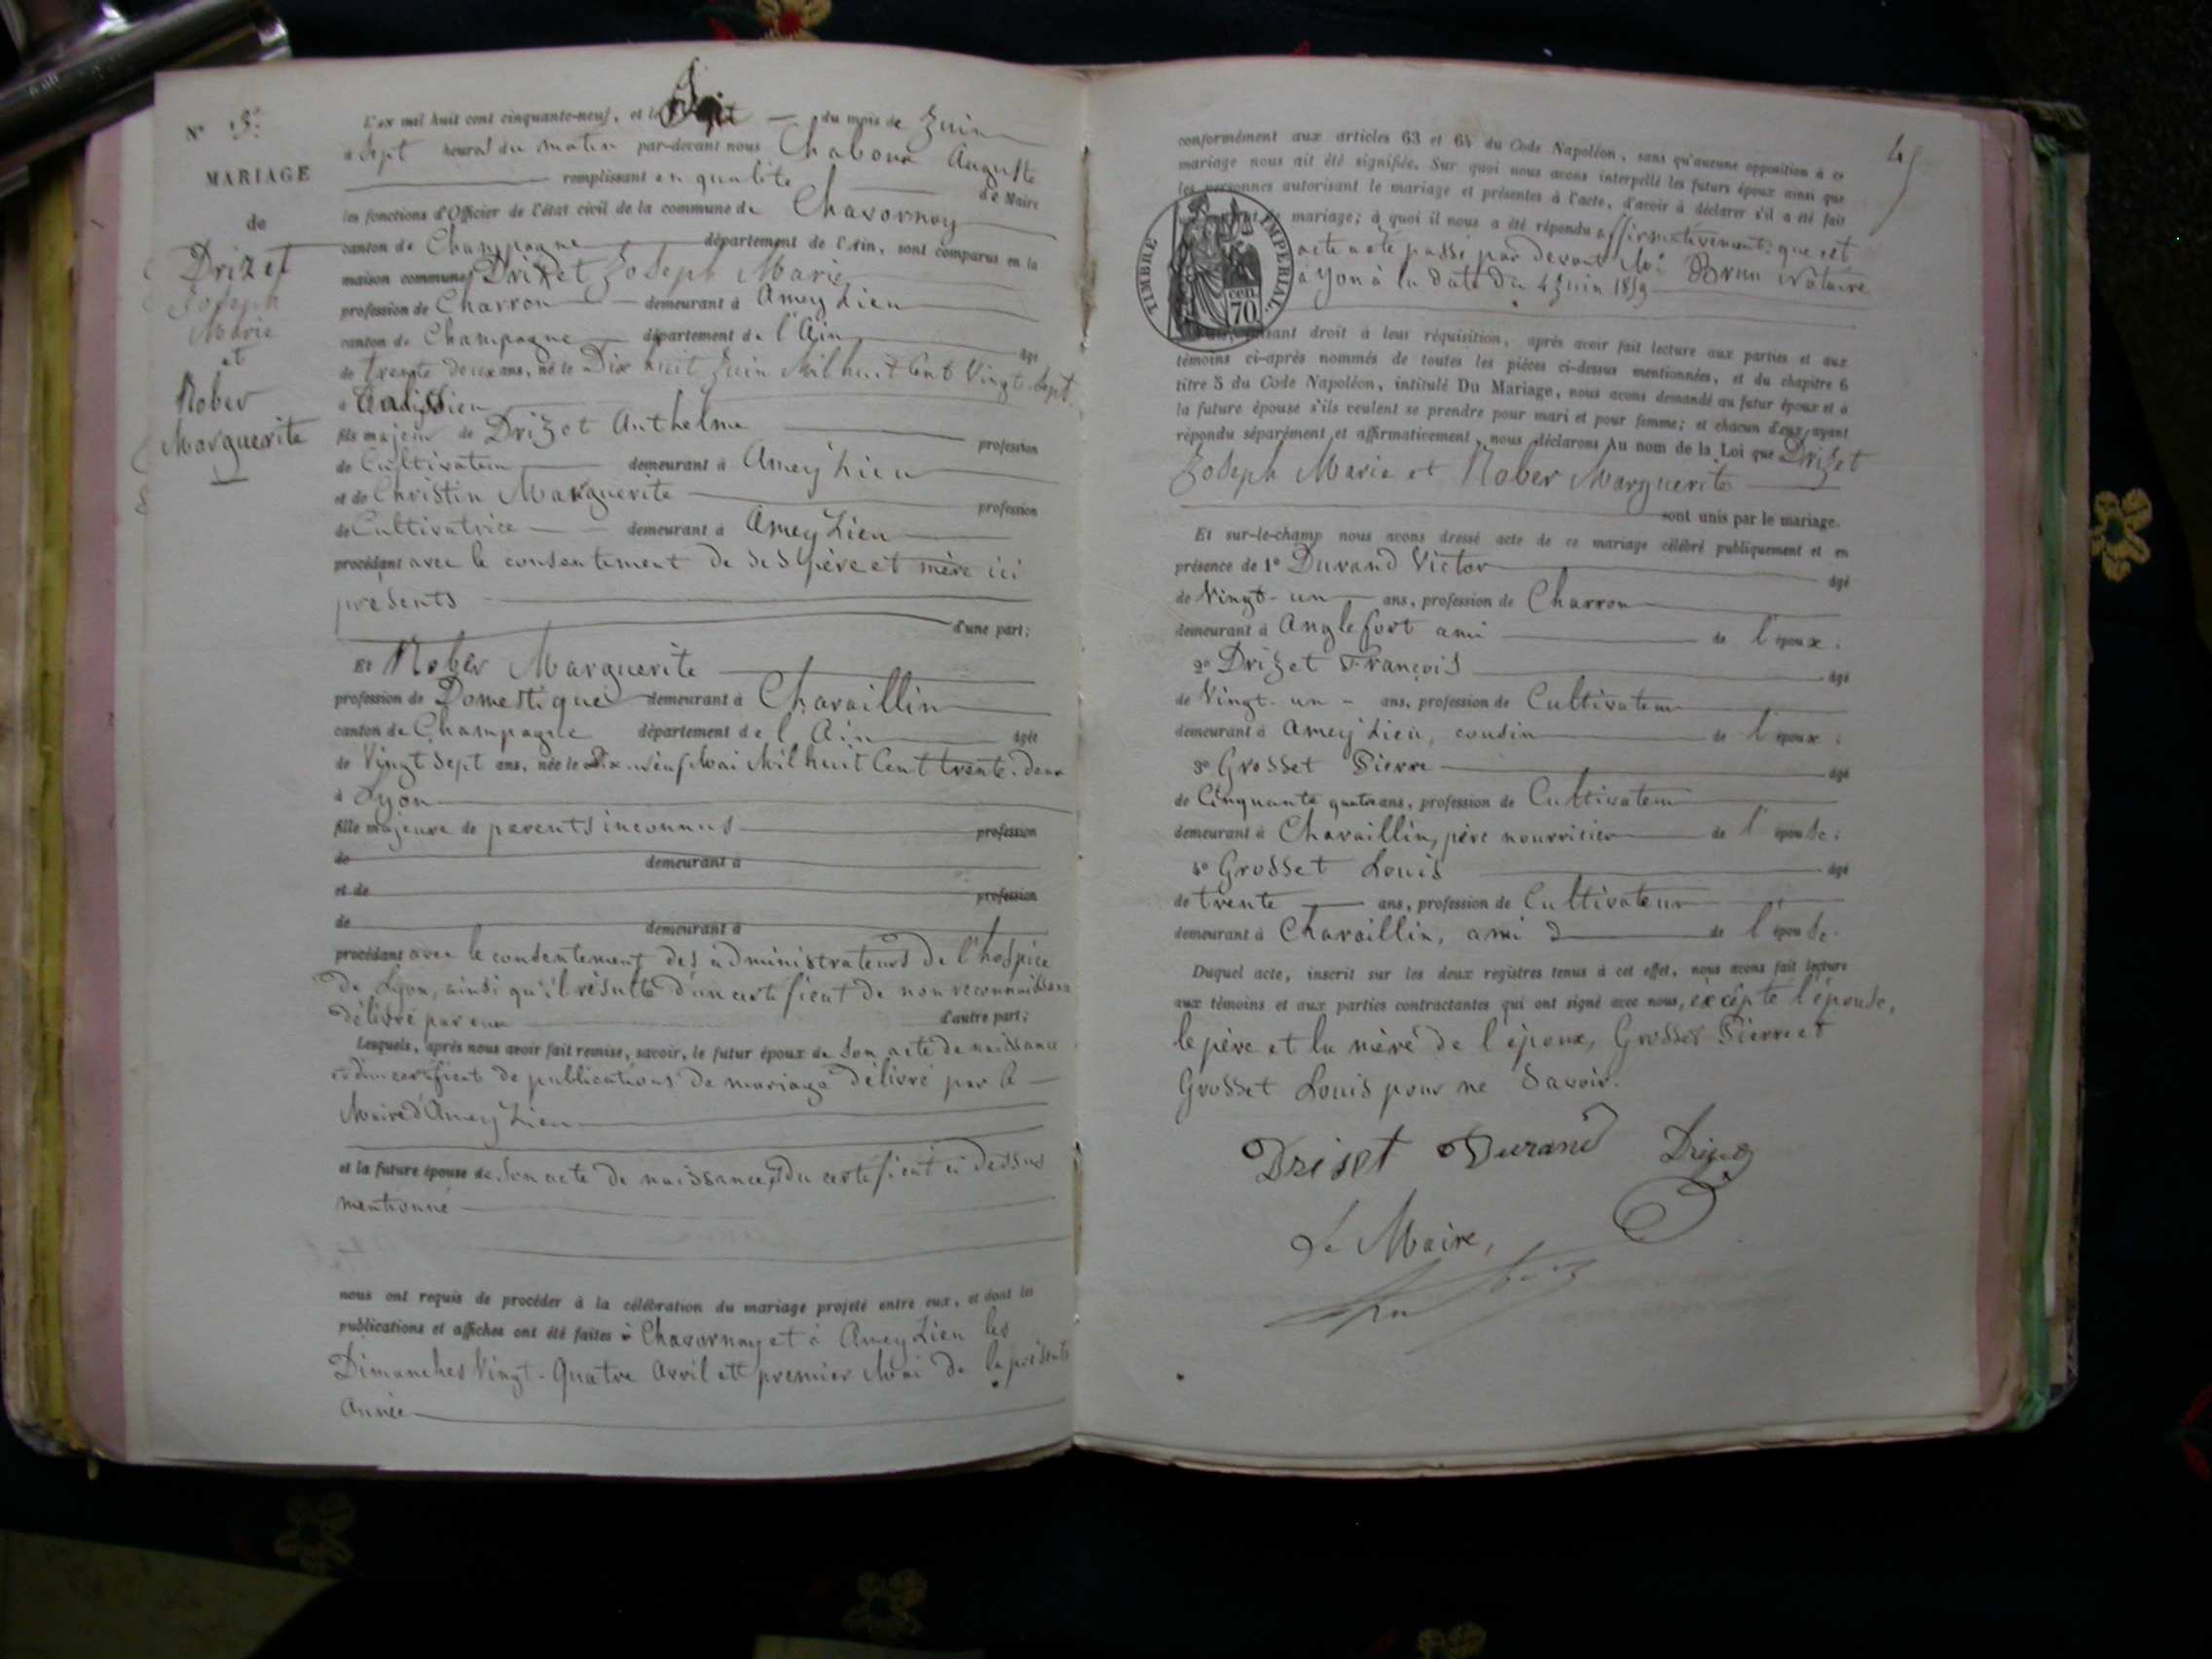 N° 3.
MARIAGE
de
Drizet
Joseph
Marie
et
Nober
Marguerite
L'an mil huit cent cinquante-neuf, et le Sept du mois de Juin
à Sept heures du matin par-devant nous Chaboux Auguste
remplissant en qualité de Maire
les fonctions d'Officier de l'état civil de la commune de Chavornay
canton de Champagne département de l'Ain, sont comparus en la
maison commune Drizet Joseph Marie
profession de Charron demeurant à Ameyzieu
canton de Champagne département de l'Ain âgé
de trente deux ans, né le Dix huit Juin Mil huit Cent Vingt-Sept
à Talissieu
fils majeur de Drizet Anthelme profession
de Cultivateur demeurant à Ameyzieu
et de Christin Marguerite profession
de Cultivatrice demeurant à Ameyzieu
procédant avec le consentement de ses père et mère ici
présents
d'une part;
Et Nober Marguerite
profession de Domestique demeurant à Charaillin
canton de Champagne département de l'Ain âgée
de Vingt Sept ans, née le Dix-neuf Mai Mil huit Cent trente-deux
à Lyon
fille majeure de parents inconnus profession
de demeurant à
et de profession
de demeurant à
procédant avec le consentement des administrateurs de l'hospice
de Lyon, ainsi qu'il résulte d'un certificat de non reconnaissance
délivré par eux d'autre part;
Lesquels, après nous avoir fait remise, savoir, le futur époux de Son acte de naissance
et d'un certificat de publications de mariage délivré par le
Maire d'Ameyzieu
et la future épouse de Son acte de naissance, du certificat ci dessus
mentionné
nous ont requis de procéder à la célébration du mariage projeté entre eux, et dont les
publications et affiches ont été faites à Chavornay et à Ameyzieu les
Dimanches Vingt-Quatre Avril et premier Mai de la présente
Année
45
conformément aux articles 63 et 64 du Code Napoléon, sans qu'aucune opposition à ce
mariage nous ait été signifiée. Sur quoi nous avons interpellé les futurs époux ainsi que
les personnes autorisant le mariage et présentes à l'acte, d'avoir à déclarer s'il a été fait
mariage; à quoi il nous a été répondu affirmativement que cet
acte a été passé par devant Me. Brun Notaire
à Yon à la date du 4 Juin 1859
TIMBRE IMPERIAL.
70 cen.
droit à leur réquisition, après avoir fait lecture aux parties et aux
témoins ci-après nommés de toutes les pièces ci-dessus mentionnées, et du chapitre 6
titre 5 du Code Napoléon, intitulé Du Mariage, nous avons demandé au futur époux et à
la future épouse s'ils veulent se prendre pour mari et pour femme; et chacun d'eux ayant
répondu séparément et affirmativement, nous déclarons Au nom de la Loi que Drizet
Joseph Marie et Nober Marguerite
sont unis par le mariage.
Et sur-le-champ nous avons dressé acte de ce mariage célébré publiquement et en
présence de 1° Durand Victor âgé
de Vingt-un ans, profession de Charron
demeurant à Anglefort ami de l'époux.
2° Drizet François âgé
de Vingt-un ans, profession de Cultivateur
demeurant à Ameyzieu, cousin de l'époux.
3° Grosset Pierre âgé
de Cinquante quatre ans, profession de Cultivateur
demeurant à Charaillin, père nourricier de l'épouse.
4° Grosset Louis âgé
de trente ans, profession de Cultivateur
demeurant à Charaillin, ami de l'épouse.
Duquel acte, inscrit sur les deux registres tenus à cet effet, nous avons fait lecture
aux témoins et aux parties contractantes qui ont signé avec nous, excepté l'épouse,
le père et la mère de l'époux, Grosset Pierre et
Grosset Louis pour ne Savoir.
Driset Durand Drizet
Le Maire,